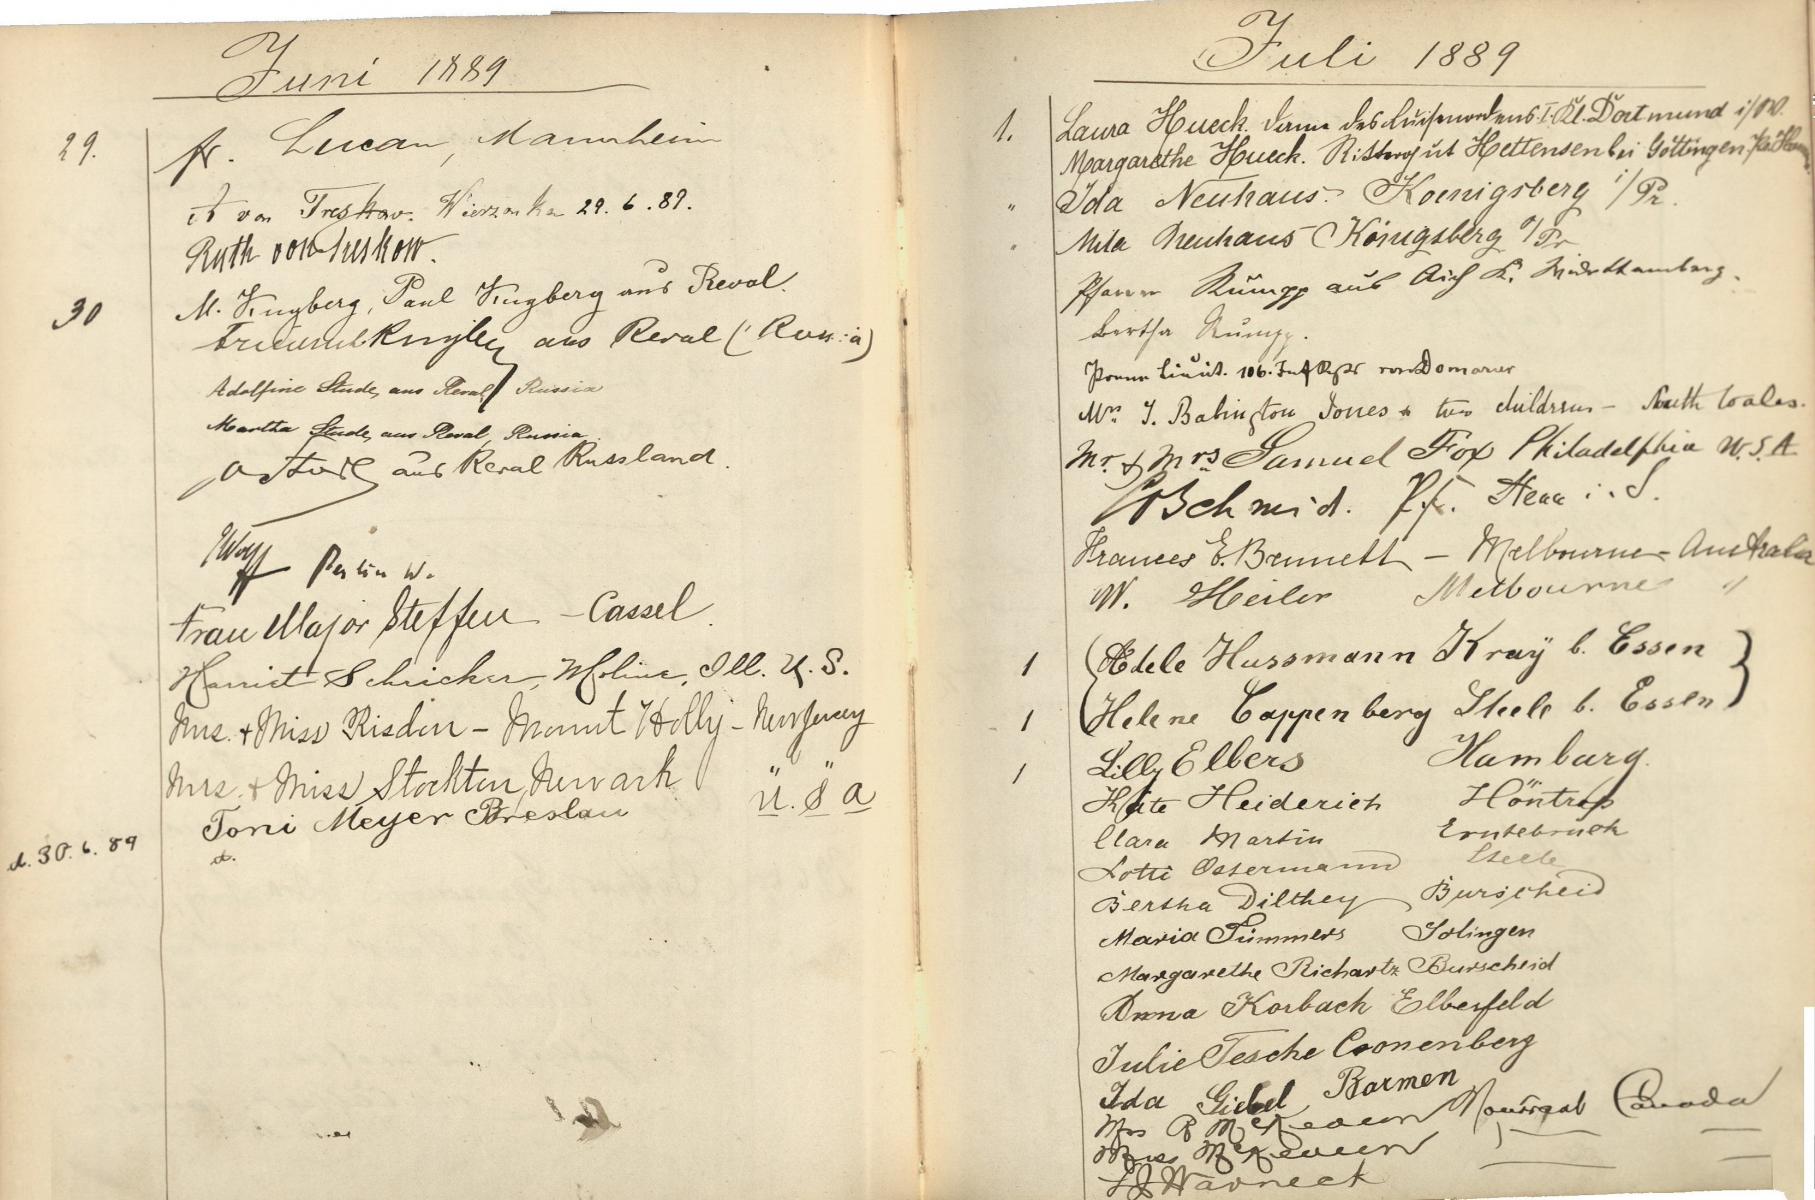 Juni 1889
29.
fr. Lucan, Mannheim
von Treskow. Wierzonka 29. 6. 89.
Ruth von Treskow.
30
M. Kugberg, Paul Kugberg aus Reval.
aus Reval (Russia)
Adolfine Stude, aus Reval, Russia
Martha Stude, aus Reval, Russia
aus Reval Russland.
Wolff Berlin W.
Frau Major Steffen – Cassel.
Harriet Schricker, Moline, Ill. U. S.
Mrs. + Miss Risdon – Mount Holly – New Jersey
Mrs. + Miss Stockton, Newark U. S A
Toni Meyer Breslau
d. 30. 6. 89
d.
Juli 1889
1. Laura Hueck. Dame des Luisenordens I. Kl. Dortmund i/W.
Margarethe Hueck. Rittergut Hettensen bei Göttingen
" Ida Neuhaus. Koenigsberg i/Pr.
" Mila Neuhaus Königsberg i/Pr
Pfarrer Rümpp aus Aich K. Württemberg.
Bertha Rümpp.
Prem. Lieut. 106. Inf Rgts von Domarus
Mrs J. Babington Jones & two children – South Wales.
Mr. & Mrs Samuel Fox Philadelphia U.S.A
Schmid. Pf.
Frances E. Bennett – Melbourne – Australia
W. Heiler Melbourne "
1 (Adele Hussmann Kray b. Essen }
1 (Helene Cappenberg Steele b. Essen }
1 Lilly Elbers Hamburg.
Käte Heiderich Höntrop
Clara Martin Erntebrück
Lotti Ostermann Steele
Bertha Dilthey Burscheid
Maria Tümmers Solingen
Margarethe Richartz Burscheid
Anna Korbach Elberfeld
Julie Tesche Cronenberg
Ida Giebel Barmen
Mrs R McKeown Montreal Canada
Miss McKeown
Warneck